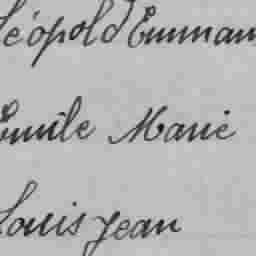 Léopold Emman
Emile Marie
Louis Jean